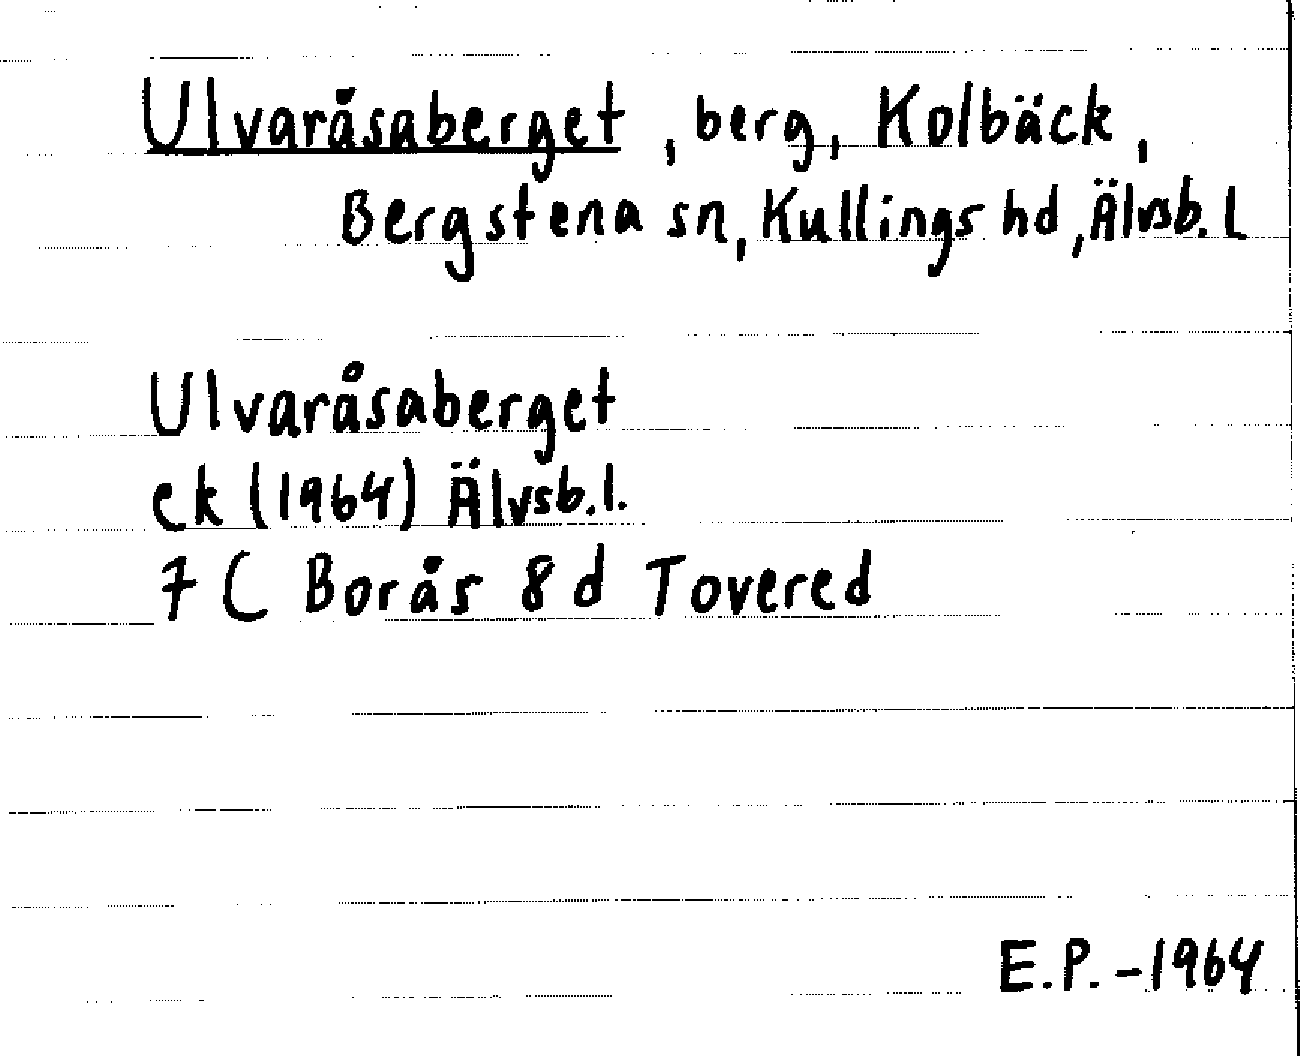 Ulvaråsaberget, berg, Kolbäck,
Bergstena sn, Kullings hd, Älvsb. l
Ulvaråsaberget
ek (1964) Älvsb.l.
7 C Borås 8 d Tovered
E.P. - 1964